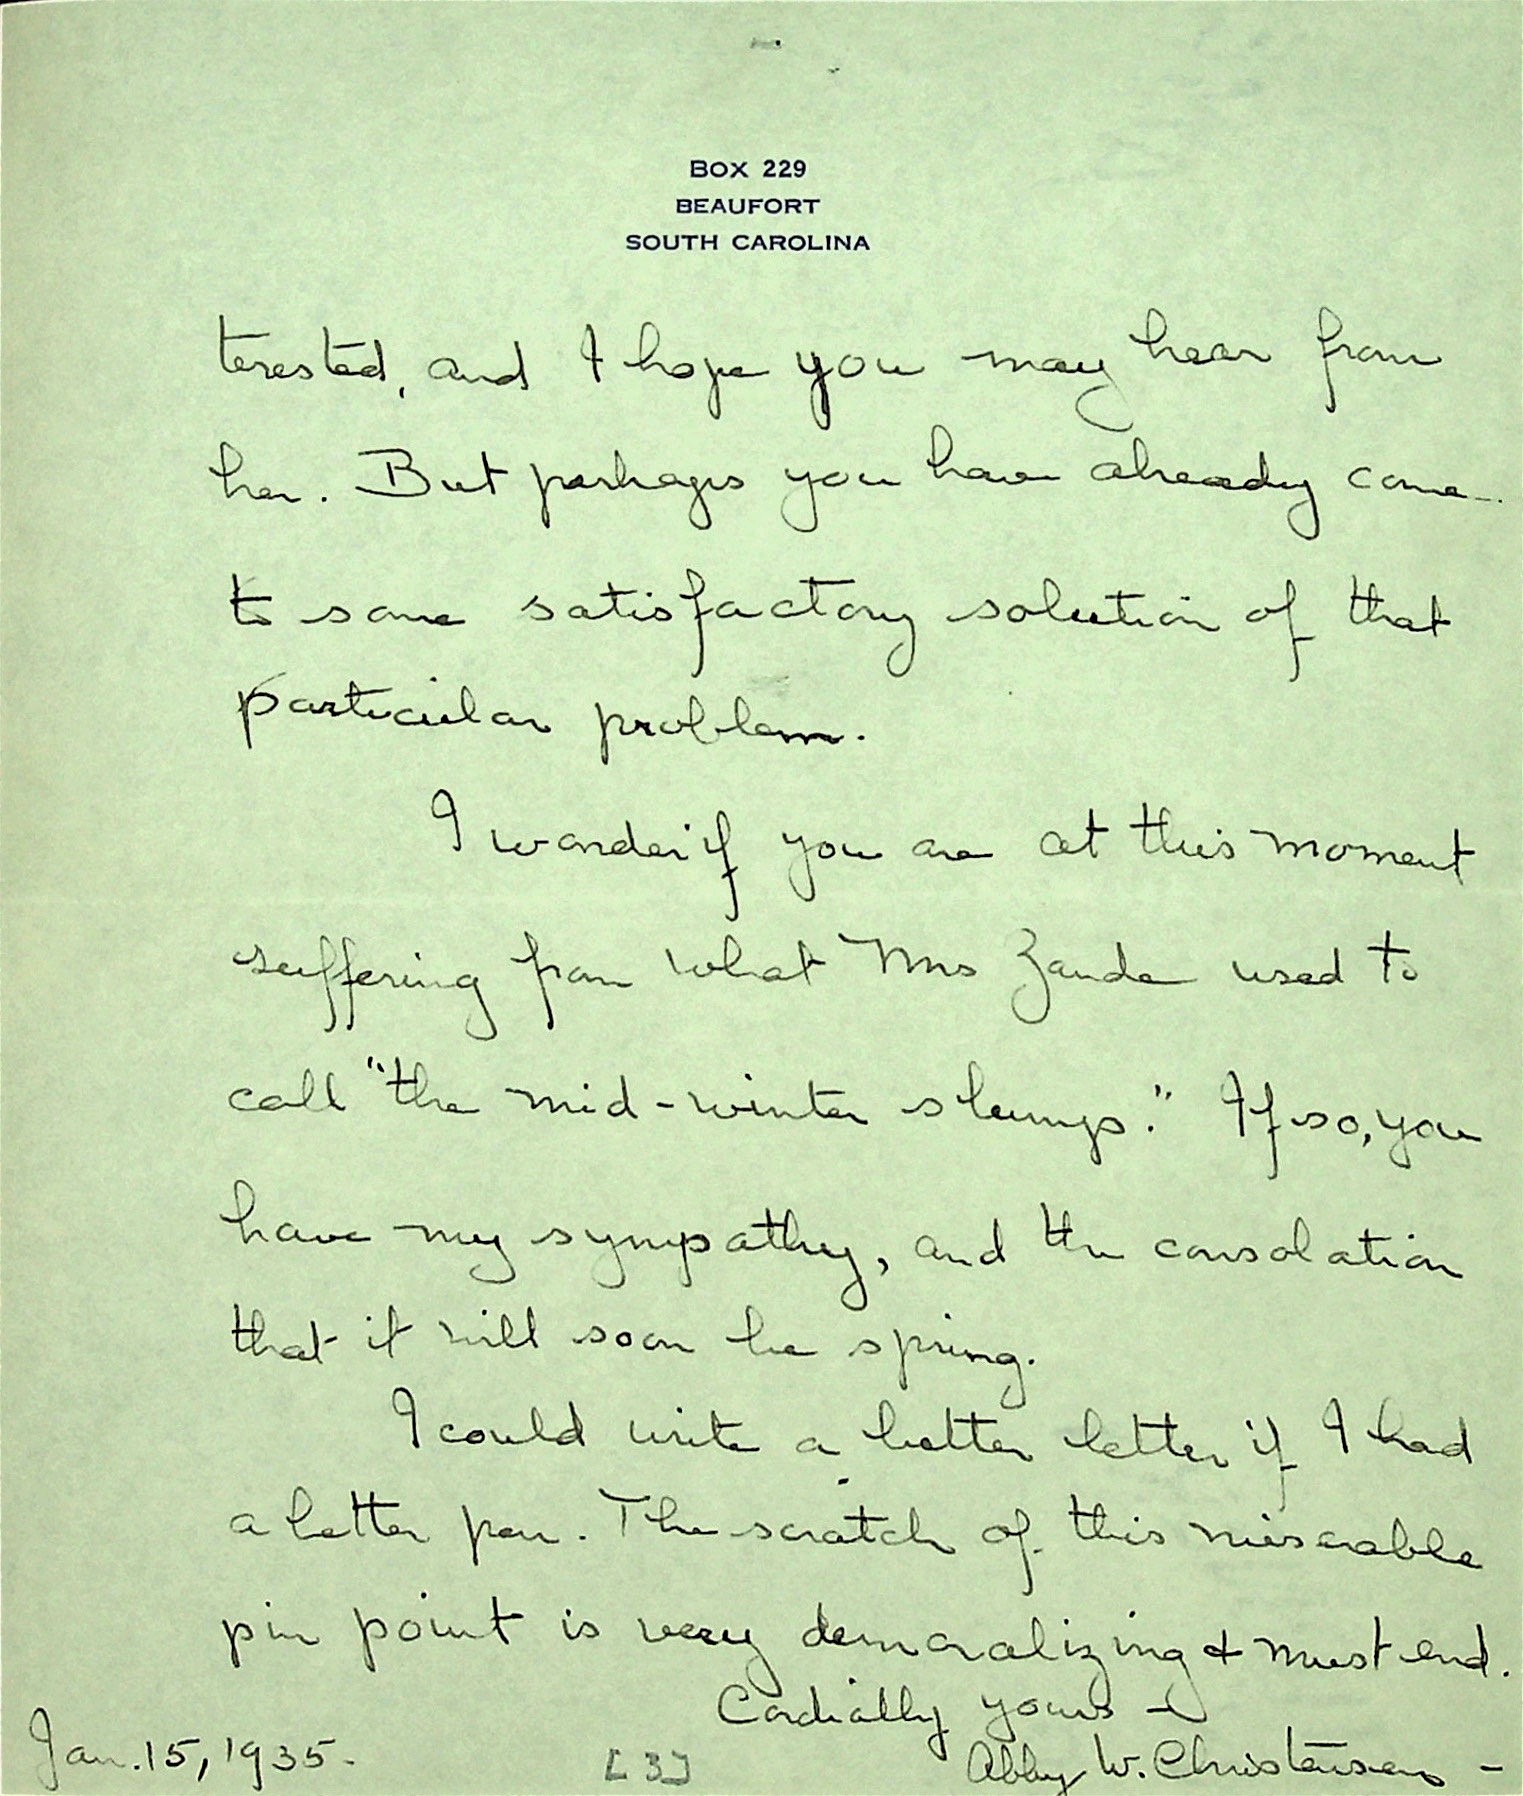 BOX 229
BEAUFORT
SOUTH CAROLINA
terested, and I hope you may hear from
her. But perhaps you have already come
to some satisfactory solution of that
particular problem.
I wonder if you are at this moment
suffering from what Mrs Zande used to
call "the mid-winter slumps." If so, you
have my sympathy, and the consolation
that it will soon be spring.
I could write a better letter if I had
a better pen. The scratch of this miserable
pin point is very demoralizing & must end.
Cordially yours -
Jan. 15, 1935.
[3]
Abby W. Christensen -